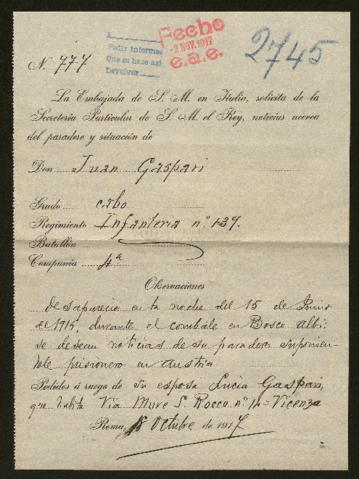 A
Pedir informes
Que se hace así
Devolver
Fecho
-2 NOV. 1917
e.a.e.
2745
N. 777
La Embajada de S. M. en Italia, solicita de la
Secretaría Particular de S. M. el Rey, noticias acerca
del paradero y situación de
Don Juan Gaspari
Grado cabo
Regimiento Infantería nº 139.
Batallón
Compañía 4ª
Observaciones
desapareció en la noche del 15 de Junio
de 1916, durante el combate en Bosco Albi-
se desean noticias de su paradero suponién-
dole prisionero en Austria
Pedidos á ruego de su esposa Lucia Gaspari,
que habita Via Mure S. Rocco nº 14 - Vicenza
Roma, 18 Octubre de 1917